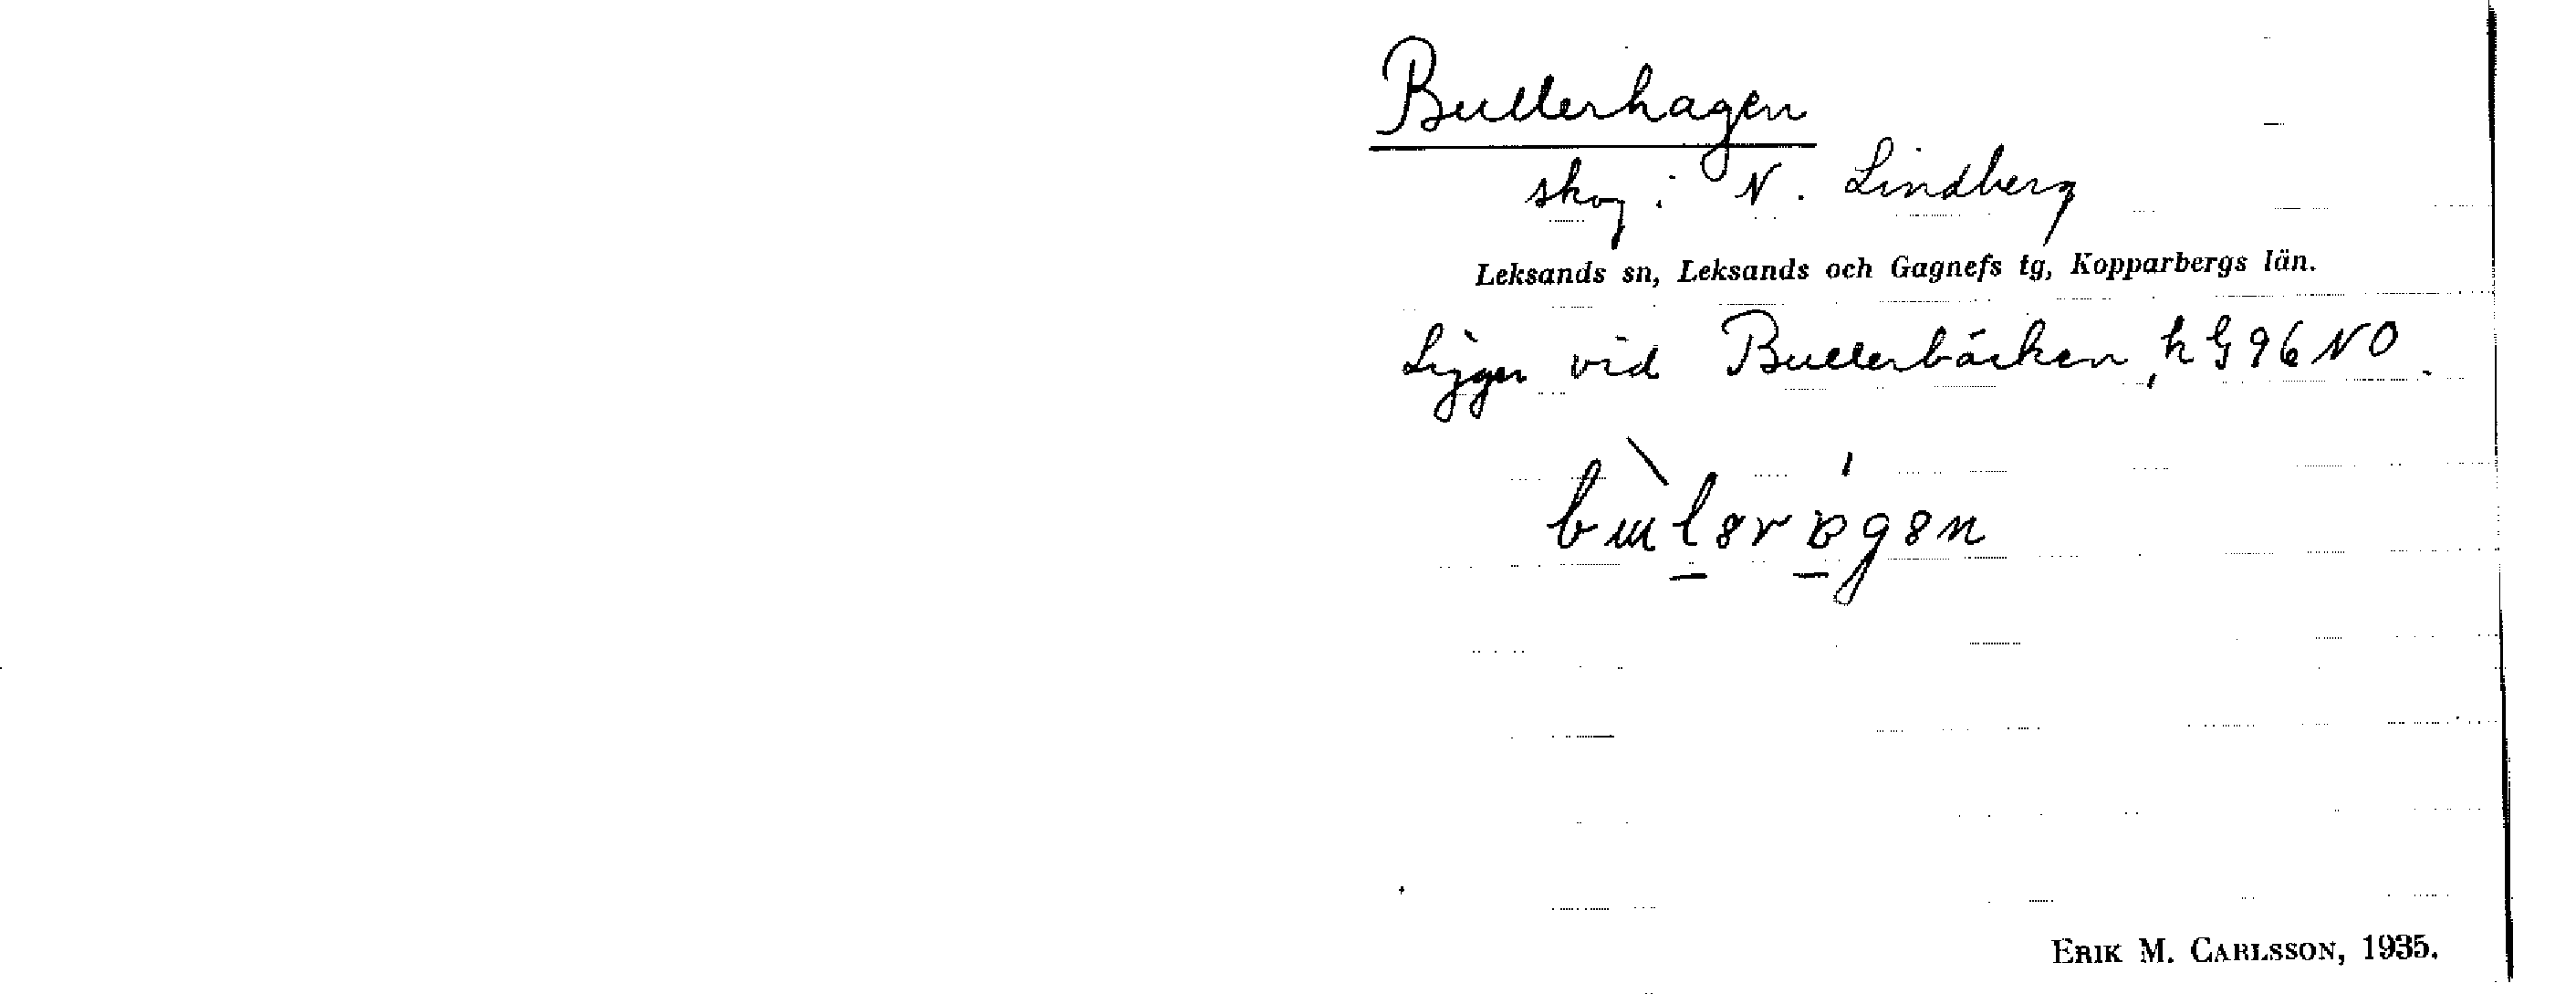 Bullerhagen
skog i N. Lindberg
Leksands sn, Leksands och Gagnefs tg, Kopparbergs län.
Ligger vid Bullerbäcken, h G 96 NO.
ERIK M. CARLSSON, 1935.